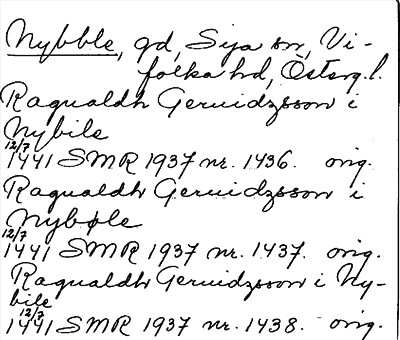 Nybble, gd, Sya sn, Vi-
folka hd, Östergl.
Ragualdh Geruidzsson i
Nybile
12/7
1441 SMR 1937 nr. 1436. orig.
Ragualdh Geruidzsson i
Nybøle
12/7
1441 SMR 1937 nr. 1437. orig.
Ragualdh Geruidzsson i Ny-
bile
12/7
1441 SMR 1937 nr. 1438. orig.